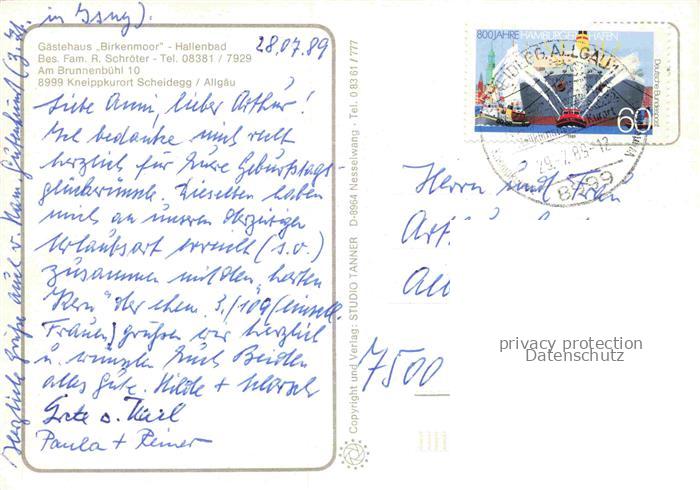 Gästehaus „Birkenmoor" - Hallenbad
Bes. Fam. R. Schröter - Tel. 08381 / 7929
Am Brunnenbühl 10
8999 Kneippkurort Scheidegg / Allgäu
28.07.89
Liebe Anni, lieber Arthur!
bedanke mich recht
herzlich für Eure Geburtstags-
glückwünsche. Dieselben haben
mich an unseren derzeitigen
Urlaubsort erreicht (s.o.)
zusammen mit dem „harten
Kern" der ehem. 3./109 (einschl.
Frauen) grüßen wir herzlich
u. wünschen Euch Beiden
alles Gute. Hilde +
Grete u.
Paula + Reiner
Herzliche Grüße auch v.
in Isny).
Copyright und Verlag: STUDIO TANNER D-8964 Nesselwang - Tel. 0 83 61 / 777
800 JAHRE HAMBURGER HAFEN
Deutsche Bundespost
60
ALLGÄU
29.7.89-12
8999
Herrn und Frau
7500
privacy protection
Datenschutz